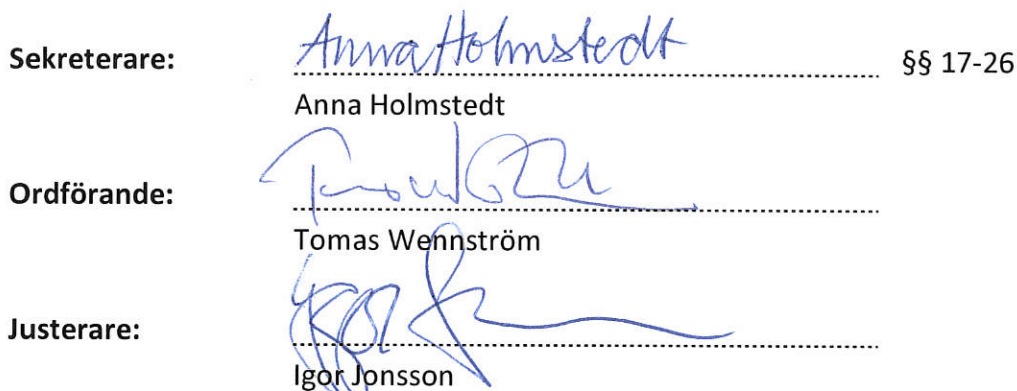 Sekreterare: Anna Holmstedt §§ 17-26
Anna Holmstedt
Ordförande:
Tomas Wennström
Justerare:
Igor Jonsson